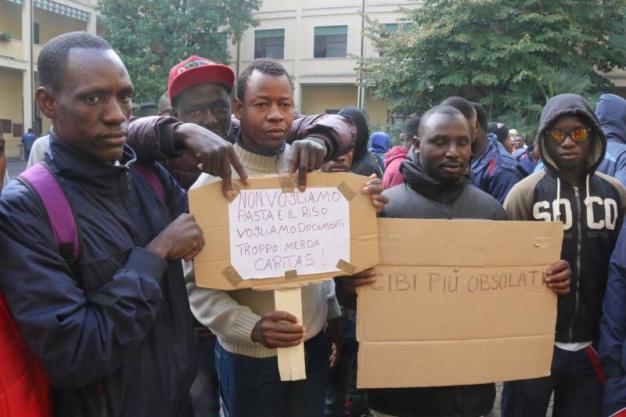 NON VOGLIAMO
PASTA E IL RISO
VOGLIAMO DOCUMENTI
TROPPO MERDA
CARITAS!
CIBI PIÙ OBSOLATI
SOCO